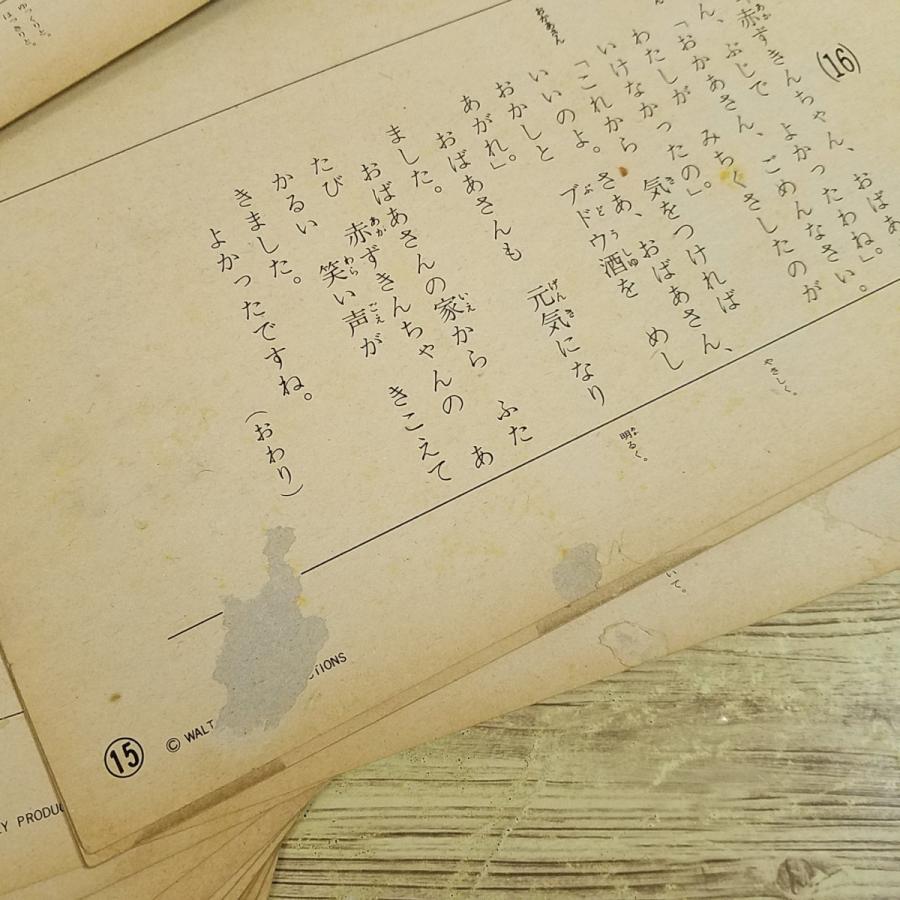 ゆっくりと。
はっきりと。
(16)
赤ずきんちゃん、　おばあ
ん、ぶじで　よかったわね」。
「おかあさん、　ごめんなさい。
わたしが　みちくさしたのが
いけなかったの」。
おかあさん
「これから　気をつければ
いいのよ。　さあ、　おばあさん、
おかしと　ブドウ酒を　めし
あがれ」。
おばあさんも　元気になり
ました。
おばあさんの家から　ふた
たび　赤ずきんちゃんの　あ
かるい　笑い声が　きこえて
きました。
よかったですね。　(おわり)
やさしく。
明るく。
いて。
⑮
© WALT
TIONS
Y PRODU